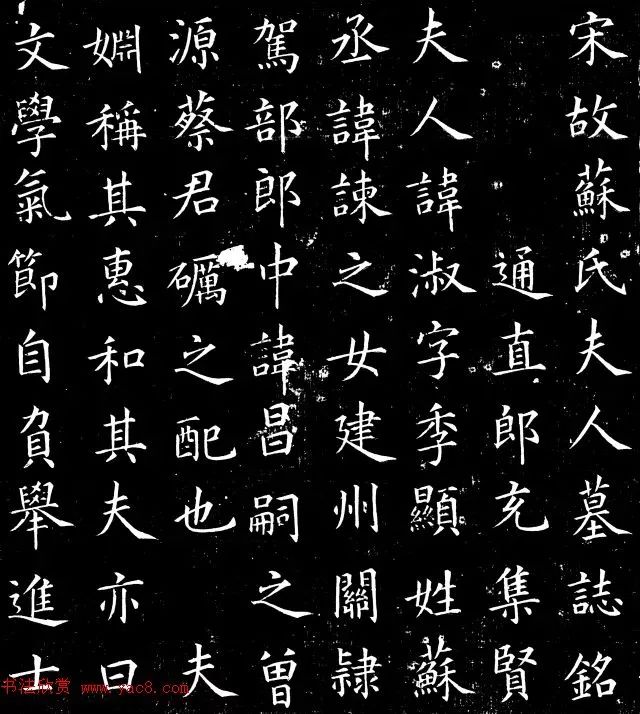 宋故蘇氏夫人墓誌銘
通直郎充集賢
夫人諱淑字季顯姓蘇
丞諱諫之女建州關隸
駕部郎中諱昌嗣之曾
源蔡君礪之配也 夫
婣稱其惠和其夫亦曰
文學氣節自負舉進士
书法欣赏 www.yac8.com